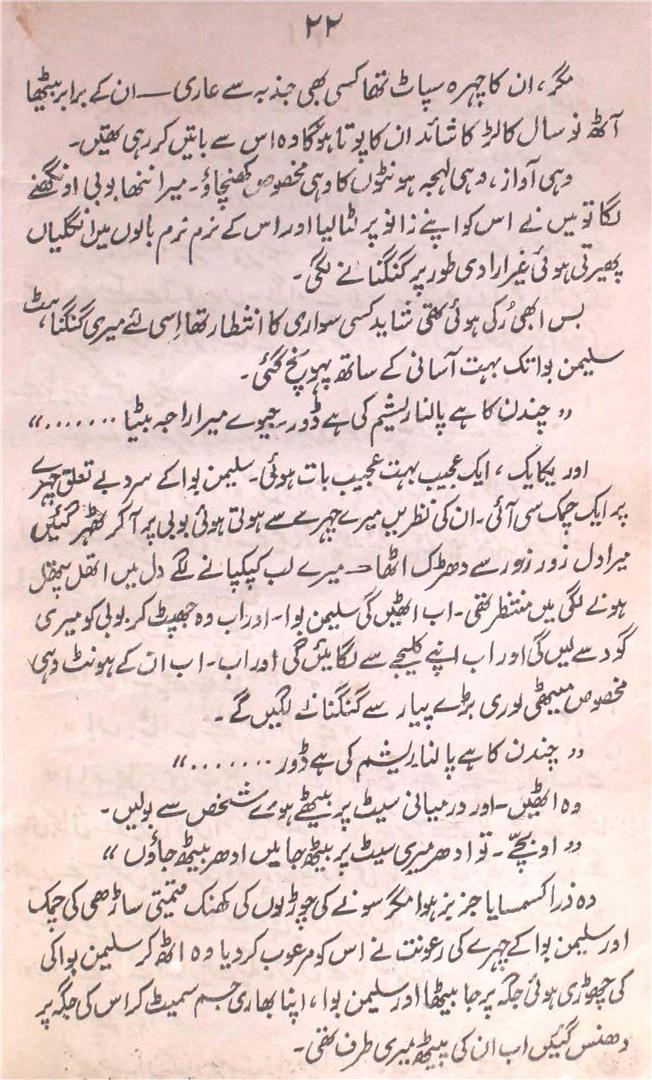 ۲۲
مگر، ان کا چہرہ سپاٹ تھا کسی بھی جذبہ سے عاری — ان کے برابر بیٹھا
آٹھ نو سال کا لڑکا شائد ان کا پوتا ہوگا وہ اس سے باتیں کر رہی تھیں۔
وہی آواز، وہی لہجہ ہونٹوں کا وہی مخصوص کھنچاؤ۔ میرا ننھا بوبی اونگھنے
لگا تو میں نے اس کو اپنے زانو پر لٹا لیا اور اس کے نرم نرم بالوں میں انگلیاں
پھیرتی ہوئی غیر ارادی طور پر گنگنانے لگی۔
بس ابھی رُکی ہوئی تھی شاید کسی سواری کا انتظار تھا اِسی لئے میری گنگناہٹ
سلیمن بوا تک بہت آسانی کے ساتھ پہونچ گئی۔
” چندن کا ہے پالنا ریشم کی ہے ڈور۔ جیوے میرا راجہ بیٹا ........“
اور یکایک، ایک عجیب بہت عجیب بات ہوئی۔ سلیمن بوا کے سرد بے تعلق چہرے
پر ایک چمک سی آئی۔ ان کی نظریں میرے چہرے سے ہوتی ہوئی بوبی پر آکر ٹھہر گئیں
میرا دل زور زور سے دھڑک اٹھا — میرے لب کپکپانے لگے دل میں اتھل پتھل
ہونے لگی میں منتظر تھی۔ اب اٹھیں گی سلیمن بوا۔ اور اب وہ جھپٹ کر بوبی کو میری
گود سے لیں گی اور اب اپنے کلیجے سے لگائیں گی اور اب۔ اب ان کے ہونٹ وہی
مخصوص میٹھی لوری بڑے پیار سے گنگنانے لگیں گے۔
” چندن کا ہے پالنا ریشم کی ہے ڈور ........“
وہ اٹھیں۔ اور درمیانی سیٹ پر بیٹھے ہوے شخص سے بولیں۔
” او بچّے۔ تو ادھر میری سیٹ پر بیٹھ جا میں ادھر بیٹھ جاؤں “
وہ ذرا کسمسایا جز بز ہوا مگر سونے کی چوڑیوں کی کھنک قیمتی ساڑھی کی چمک
اور سلیمن بوا کے چہرے کی رعونت نے اس کو مرعوب کر دیا وہ اٹھ کر سلیمن بوا کی
کی چھوڑی ہوئی جگہ پر جا بیٹھا اور سلیمن بوا، اپنا بھاری جسم سمیٹ کر اس کی جگہ پر
دھنس گئیں اب ان کی پیٹھ میری طرف تھی۔